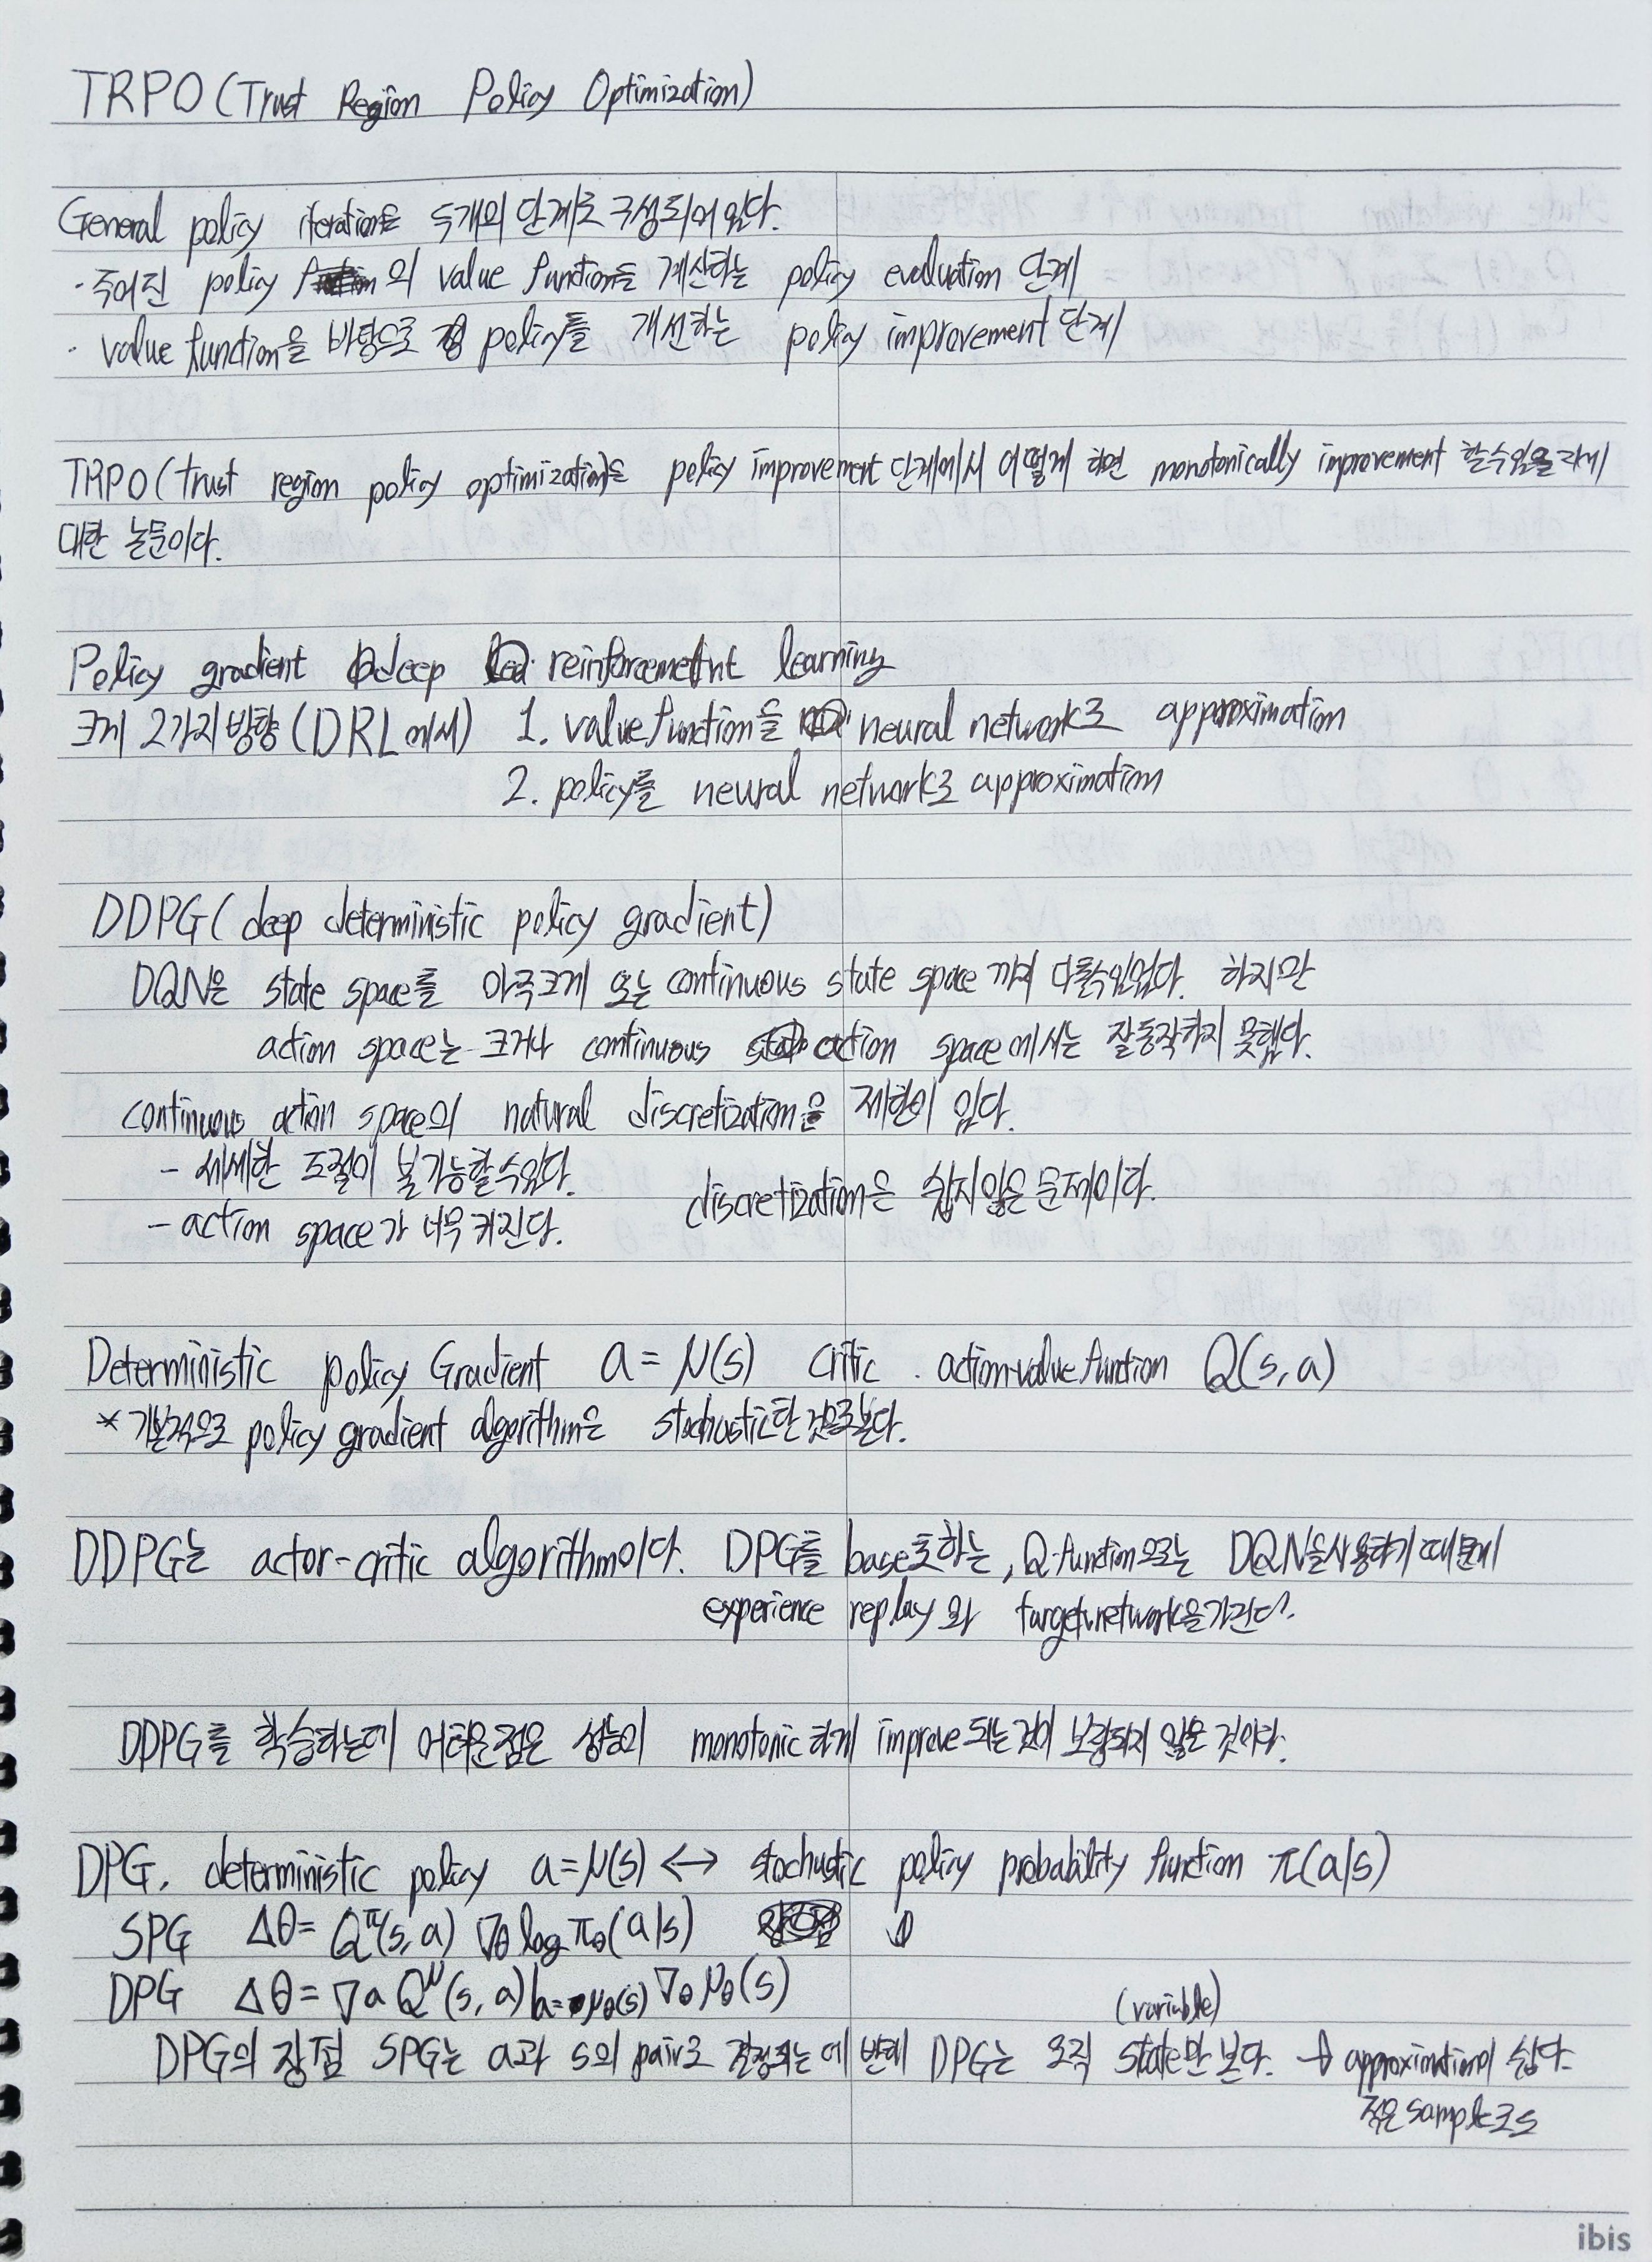 TRPO (Trust Region Policy Optimization)
General policy iteration은 두개의 단계로 구성되어 있다.
· 주어진 policy 의 value function을 계산하는 policy evaluation 단계
· value function을 바탕으로 policy를 개선하는 policy improvement 단계
TRPO (trust region policy optimization)은 policy improvement 단계에서 어떻게 하면 monotonically improvement 할수있을 지에
대한 논문이다.
Policy gradient deep reinforcement learning
크게 2가지 방향 (DRL에서) 1. value function을 neural network로 approximation
2. policy를 neural network로 approximation
DDPG (deep deterministic policy gradient)
DQN은 state space를 아주크게 또는 continuous state space 까지 다룰수있었다. 하지만
action space는 크거나 continuous action space에서는 잘동작하지 못했다.
continuous action space의 natural discretization은 제한이 있다.
- 세세한 조절이 불가능할수있다.
discretization은 쉽지않은 문제이다.
- action space가 너무 커진다.
Deterministic policy Gradient a = μ(s) critic . action-value function Q(s,a)
* 기본적으로 policy gradient algorithm은 stochastic한 것으로본다.
DDPG는 actor-critic algorithm이다. DPG를 base로하는, Q-function으로는 DQN을사용하기 때문에
experience replay 와 target network을가진다.
DDPG를 학습하는데 어려운점은 성능이 monotonic 하게 improve 되는것이 보장되지 않은 것이다.
DPG. deterministic policy a=μ(s) ↔ stochastic policy probability function π(a|s)
SPG Δθ = Q^π(s,a) ∇θ log πθ(a|s) ↓
DPG Δθ = ∇a Q^μ(s,a)|a=μθ(s) ∇θ μθ(s)
(variable)
DPG의 장점 SPG는 a과 s의 pair로 결정되는 에 반해 DPG는 오직 state만 본다. → approximation이 쉽다.
적은 sample로도
ibis